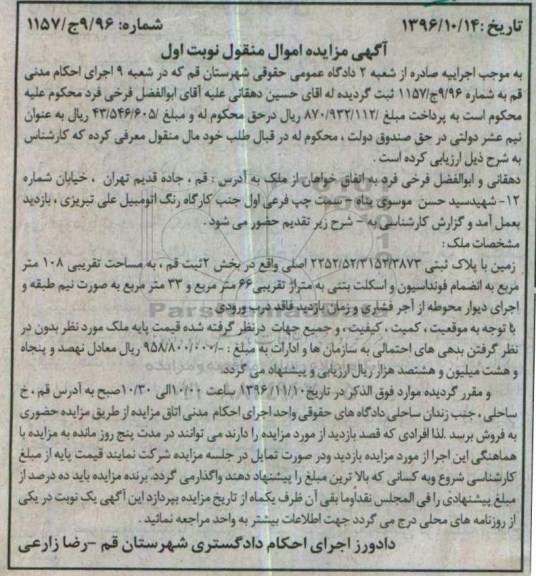 تاریخ :۱۳۹۶/۱۰/۱۴ شماره: ۹/۹۶ج/۱۱۵۷
آگهی مزایده اموال منقول نوبت اول
به موجب اجراییه صادره از شعبه ۲ دادگاه عمومی حقوقی شهرستان قم که در شعبه ۹ اجرای احکام مدنی
قم به شماره ۹/۹۶ج/۱۱۵۷ ثبت گردیده له اقای حسین دهقانی علیه آقای ابوالفضل فرخی فرد محکوم علیه
محکوم است به پرداخت مبلغ /۸۷۰/۹۳۲/۱۱۲ ریال درحق محکوم له و مبلغ /۴۳/۵۴۶/۶۰۵ ریال به عنوان
نیم عشر دولتی در حق صندوق دولت ، محکوم له در قبال طلب خود مال منقول معرفی کرده که کارشناس
به شرح ذیل ارزیابی کرده است .
دهقانی و ابوالفضل فرخی فرد به اتفاق خواهان از ملک به آدرس : قم ، جاده قدیم تهران ، خیابان شماره
۱۲- شهیدسید حسن موسوی پناه - سمت چپ فرعی اول جنب کارگاه رنگ اتومبیل علی تبریزی ، بازدید
بعمل آمد و گزارش کارشناسی به - شرح زیر تقدیم حضور می شود .
مشخصات ملک :
زمین با پلاک ثبتی ۲۲۵۲/۵۲/۳۱۵۲/۳۸۷۳ اصلی واقع در بخش ۲ثبت قم ، به مساحت تقریبی ۱۰۸ متر
مربع به انضمام فونداسیون و اسکلت بتنی به متراژ تقریبی ۶۶ متر مربع و ۳۳ متر مربع به صورت نیم طبقه و
اجرای دیوار محوطه از آجر فشاری و زمان بازدید فاقد درب ورودی
با توجه به موقعیت ، کمیت ، کیفیت ، و جمیع جهات درنظر گرفته شده قیمت پایه ملک مورد نظر بدون در
نظر گرفتن بدهی های احتمالی به سازمان ها و ادارات به مبلغ : -/۹۵۸/۸۰۰/۰۰۰ ریال معادل نهصد و پنجاه
و هشت میلیون و هشتصد هزار ریال ارزیابی و پیشنهاد می گردد.
و مقرر گردیده موارد فوق الذکر در تاریخ۱۳۹۶/۱۱/۱۰ ساعت ۱۰/۰۱الی ۱۰/۳۰صبح به آدرس قم ، خ
ساحلی ، جنب زندان ساحلی دادگاه های حقوقی واحد اجرای احکام مدنی اتاق مزایده از طریق مزایده حضوری
به فروش برسد .لذا افرادی که قصد بازدید از مورد مزایده را دارند می توانند در مدت پنج روز مانده به مزایده با
هماهنگی این اجرا از مورد مزایده بازدید ودر صورت تمایل در جلسه مزایده شرکت نمایند قیمت پایه از مبلغ
کارشناسی شروع وبه کسانی که بالا ترین مبلغ را پیشنهاد دهند واگذارمی گردد. برنده مزایده باید ده درصد از
مبلغ پیشنهادی را فی المجلس نقداًوما بقی آن ظرف یکماه از تاریخ مزایده بپردازد این آگهی یک نوبت در یکی
از روزنامه های محلی درج می گردد جهت اطلاعات بیشتر به واحد مراجعه نمائید .
دادورز اجرای احکام دادگستری شهرستان قم -رضا زارعی